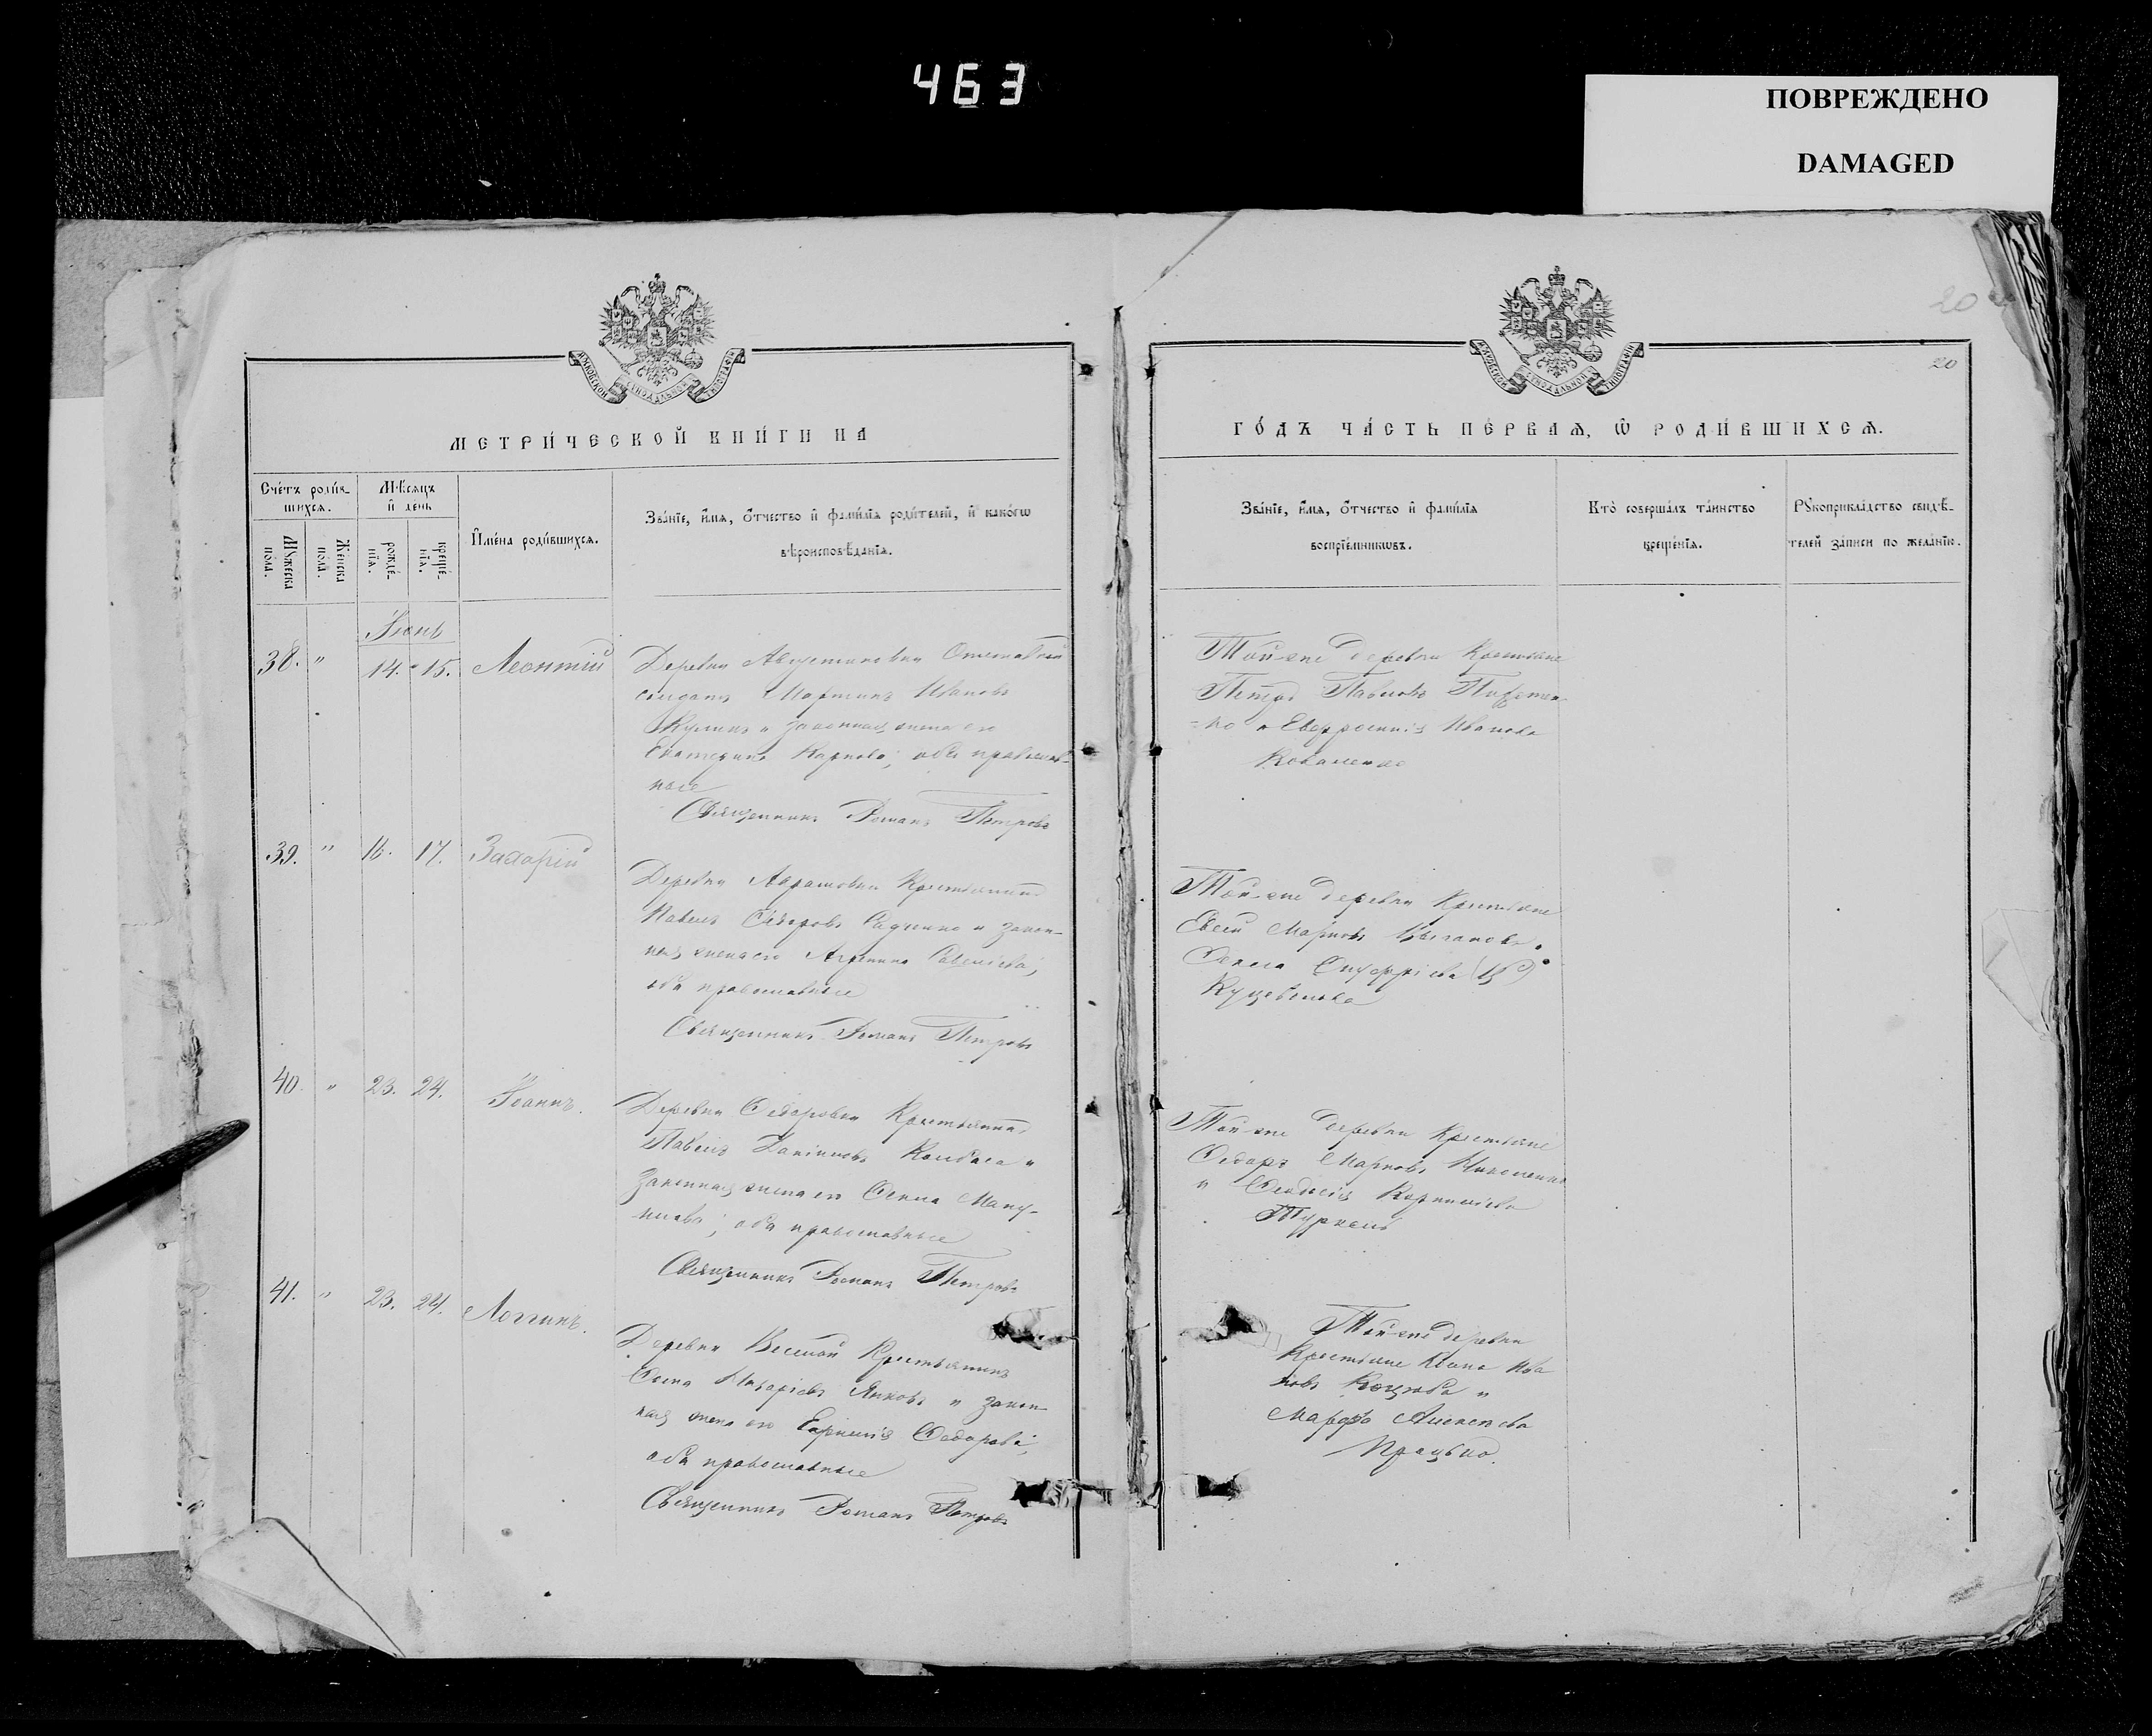 463
ПОВРЕЖДЕНО
DAMAGED
20
20
МОСКОВСКОЙ СѴНОДАЛЬНОЙ ТИПОГРАФІИ
МОСКОВСКОЙ СѴНОДАЛЬНОЙ ТИПОГРАФІИ
МЕТРИ́ЧЕСКОЙ КНИ́ГИ НА
ГО́ДЪ ЧА́СТЬ ПЕ́РВАЯ, Ѡ РОДИ́ВШИХСЯ.
Сче́тъ роди́в-
шихся.
Мѣ́сяцъ
и҆ де́нь
Му́жеска
по́ла.
Же́нска
по́ла.
рожде́-
нїя.
креще́-
нїя.
И҆мена́ роди́вшихся.
Зва́нїе, и҆́мя, ѻ҆́тчество и҆ фами́лїя роди́телей, и҆ како́гѡ
вѣроисповѣ́данїя.
Зва́нїе, и҆́мя, ѻ҆́тчество и҆ фами́лїя
воспрїе́мникѡвъ.
Кто̀ соверша́лъ та́инство
креще́нїя.
Рꙋкоприкла́дство свидѣ́-
телей за́писи по жела́нїю.
Іюнь
38. " 14. 15. Леонтій
Деревни Августиновки Отставной
солдатъ Мартинъ Ивановъ
и законная жена его
Екатерина Карпова; оба православ-
ные
Священникъ Романъ Петровъ
Той-же деревни Крестьяне
Петръ Павловъ
-ко и Евфросинія Иванова
Коваленко
39. " 16. 17. Захарій
Деревни Крестьянинъ
Павелъ Сидоровъ Радченко и закон-
ная жена его Агрипина Савельева;
оба православные
Священникъ Романъ Петровъ
Той-же деревни Крестьяне
Евсей Марковъ
Фекла Онуфріева
40. " 23. 24. Іоаннъ.
Деревни Федоровки Крестьянинъ
Павелъ Даніиловъ Колбаса и
законная жена его Фекла Ману-
илова; оба православные
Священникъ Романъ Петровъ
Той-же деревни Крестьяне
Федоръ Марковъ Николенко
и Феодосія Корниліева
41. " 23. 24. Логгинъ.
Деревни Веселой Крестьянинъ
Фома Назаріевъ Яковъ и закон-
ная жена его Евфимія Федорова;
оба православные
Священникъ Романъ Петровъ
Той-же деревни
Крестьяне Ива
новъ Коцюба и
Марфа Алексѣева